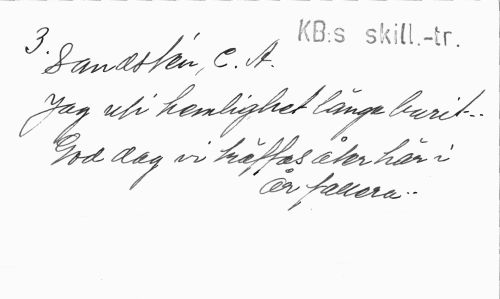 3.
KB:s skill.-tr.
Sandstén, C. A.
Jag uti hemlighet länge burit...
God dag vi träffas åter här i
År fallera...